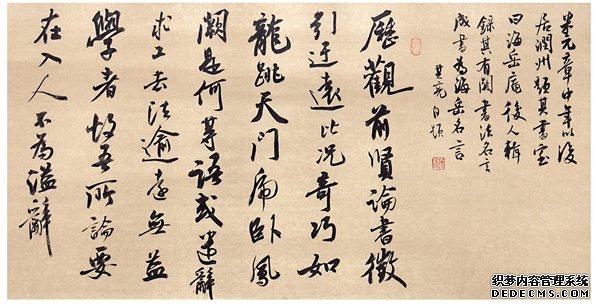 米元章中年以後
居潤州額其書室
曰海岳庵後人輯
錄其有関書法名言
成書為海岳名言
亮自題
歷觀前賢論書徵
引迂遠比況奇巧如
龍跳天門虎臥鳳
闕是何等語或遣辭
求工去法逾遠無益
學者故吾所論要
在入人不為溢辭
织梦内容管理系统
DEDECMS.COM